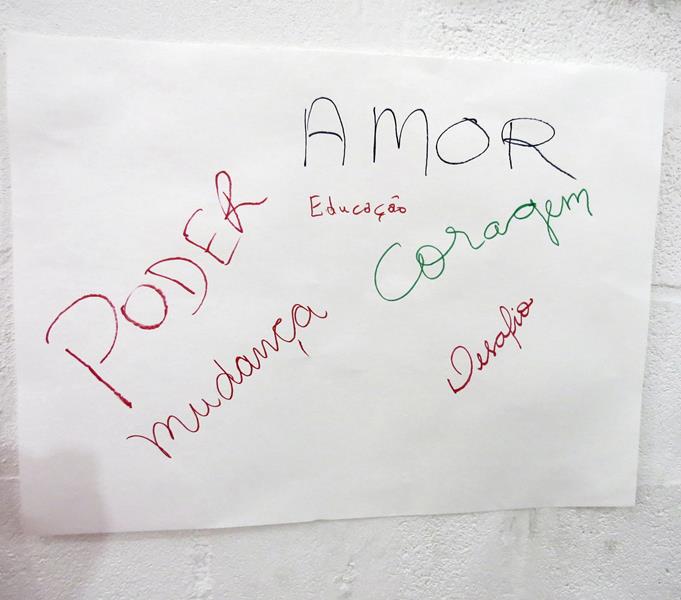 AMOR
Educação
PODER
Coragem
mudança
Desafio